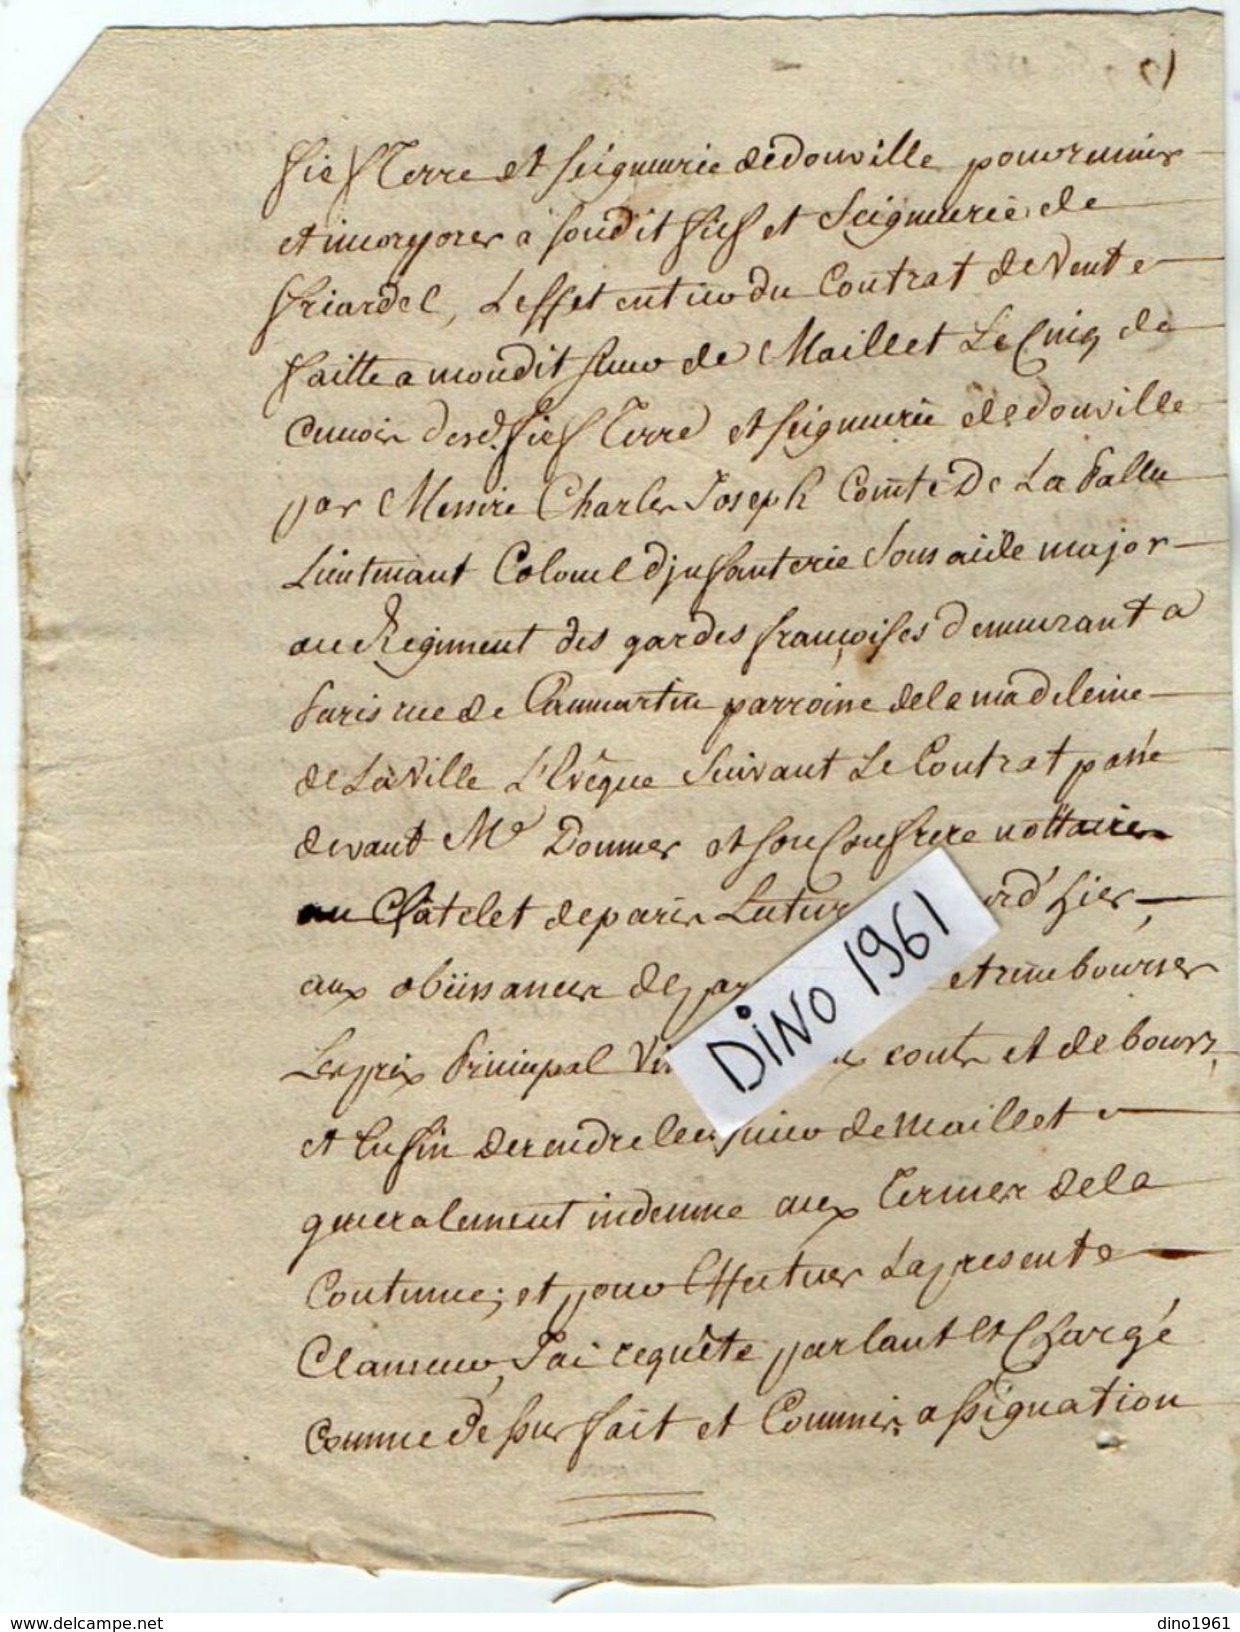 fief Terre et seigneurie dedouville pour reunir
et incorporer a soudit fief et Seigneurie de
friardel, Leffet entier du Contrat de Vente
faitte a mondit sieur de Maillet Le Cniq de
Cernoir desd. fief Terre et seigneurie de douville
par Messire Charles Joseph Comte De La Pallu
Lieutenant Colonel djnfanterie Sous aide major
au Regiment des gardes françoises demeurant a
Paris rue de Caumartin parroisse dela madeleine
de La Ville L'Evêque Suivant Le Contrat passé
devant Me Donner et son Confrere nottaires
au Châtelet deparis Lecture d'hier
aux obeissances de et rembourser
Les prix Principal couts et debours,
et Enfin derendre led. sieur de Maillet
generalement indemne aux Termes dela
Coutume; et pour Effectuer Lapresente
Clameur, J'ai requête parlant et Chargé
comme dessus fait et Commis assignation
DiNO 1961
delcampe.net
dino1961